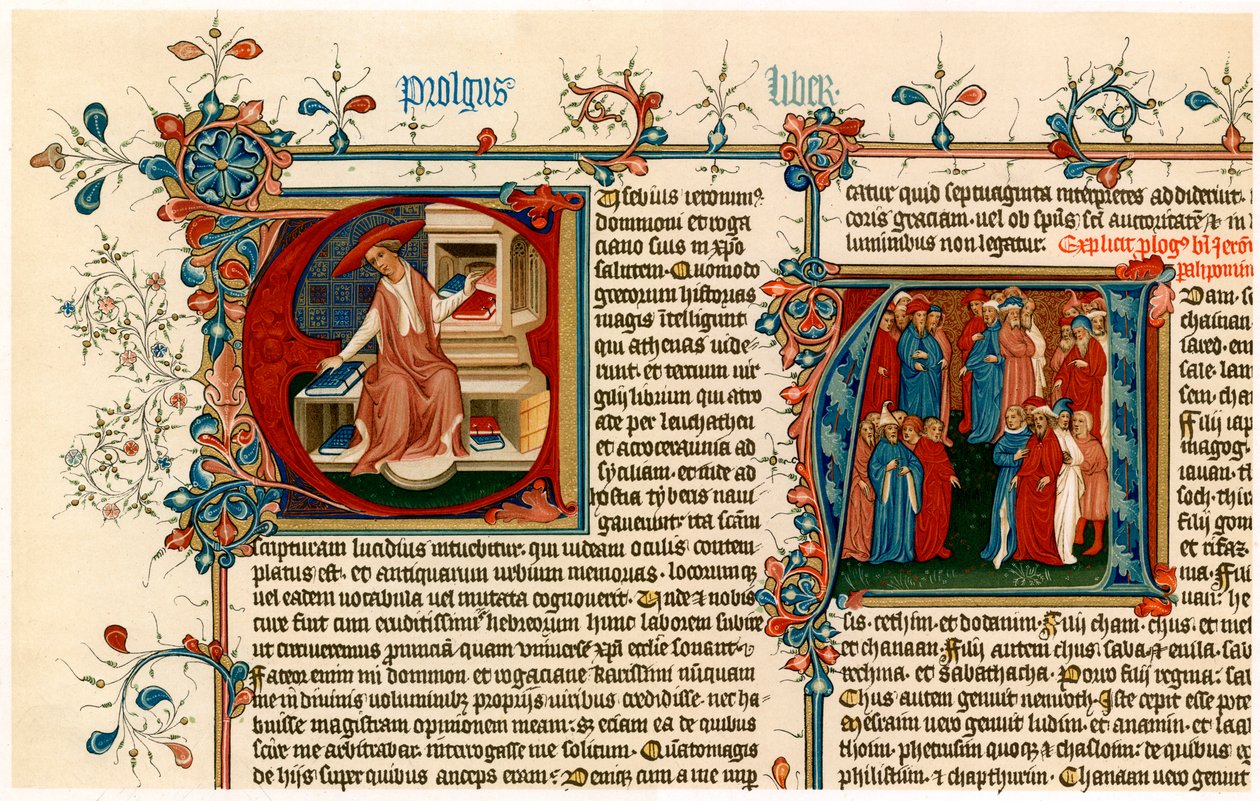 Prolgus
Liber.
Usebius ieronim9
dominioni et roga
ciano suis in xp̄o
salutem. Quomodo
grecorum historias
magis ītelligunt
qui athenas vide-
runt. et tercium vir
gilij librum qui a tro
ade per leuchathen
et acroceraunia ad
syciliam. et inde ad
hostia tyberis navi
gaverint: ita scām
scripturam lucidius intuebitur. qui iudeam oculis contem
platus est. et antiquarum urbium memorias. locorumq
vel eadem vocabula vel mutata cognoverit. Unde et nobis
cure fuit cum eruditissimis hebreorum hunc laborem subire
ut circuiremus provinciā quam universe xp̄i ecclīe sonant.
Fateor enim mi dominion et rogaciane karissimi nūquam
me in divinis voluminibz proprijs viribus credidisse. nec ha-
buisse magistram opinionem meam: sz eciam ea de quibus
scire me arbitrabar. interrogasse me solitum. Quātomagis
de hijs super quibus anceps eram: Deniqz cum a me nup
catur quid septuaginta interpretes addiderint.
coris graciam. vel ob spūs sc̄i auctoritatē & in
luminibus non legatur. Explicit plog9 bī Jerōn
palipomin
Dam. s
chainan
iared. en
sale. lam
sem. cha
Filij iap
magog
iavan. ti
soch. thir
Filij gom
et rifaz
ma. Filij
van: he
sis. cethim. et dodanim. Filij cham. chus. et mes
et chanaan. Filij autem chus. saba. & evila. sab
rechma. et Sabathacha. Porro filij regma: sa
Chus autem genuit nemroth. Iste cepit esse pote
Mesraim vero genuit ludim. et anamin. et laa
thoim. phetrusim quoqz & chasloim: de quibus e
philistiim. & chapthurim. Chanaan vero genuit